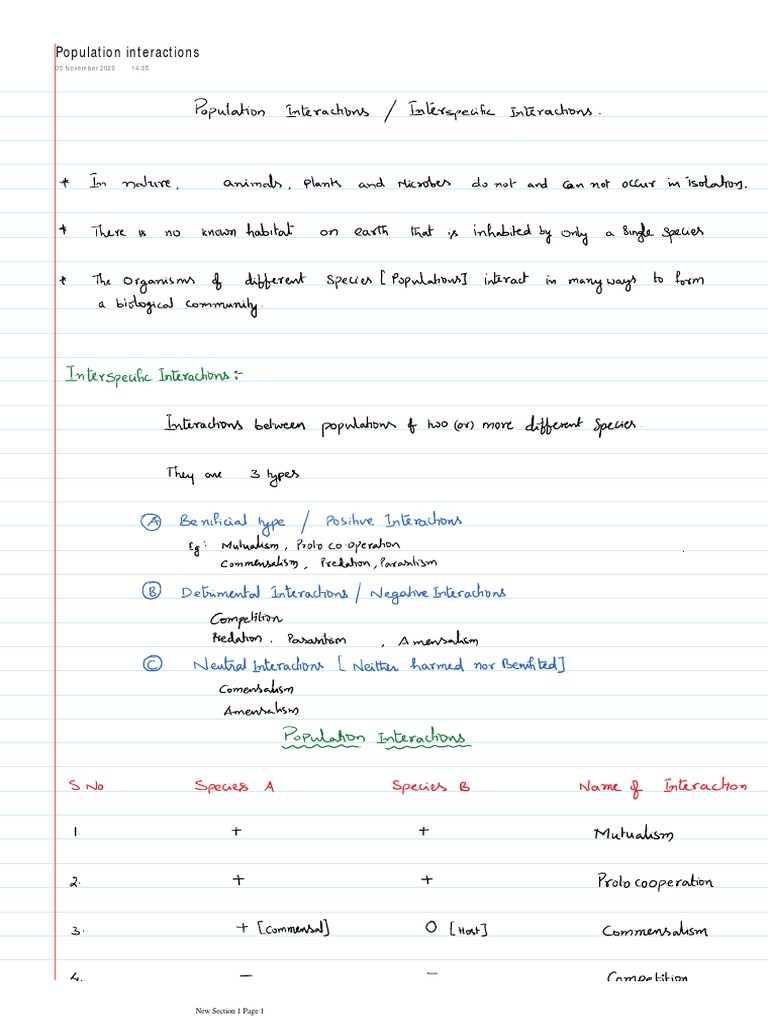 Population interactions
05 November 2020 14:35
Population Interactions / Interspecific Interactions.
* In nature, animals, plants and Microbes do not and can not occur in isolation.
* There is no known habitat on earth that is inhabited by only a single species
* The Organisms of different species [Populations] interact in many ways to form
a biological community.
Interspecific Interactions:-
Interactions between populations of two (or) more different species.
They are 3 types
(A) Benificial type / Positive Interactions
Eg: Mutualism, Proto co-operation
Commensalism, Predation, Parasitism
(B) Detrimental Interactions / Negative Interactions
Competition
Predation, Parasitism, Amensalism
(C) Neutral Interactions [Neither harmed nor Benifited]
Comensalism
Amensalism
Population Interactions
S.No Species A Species B Name of Interaction
1. + + Mutualism
2. + + Proto cooperation
3. + [Commensal] O [Host] Commensalism
4. - - Competition
New Section 1 Page 1